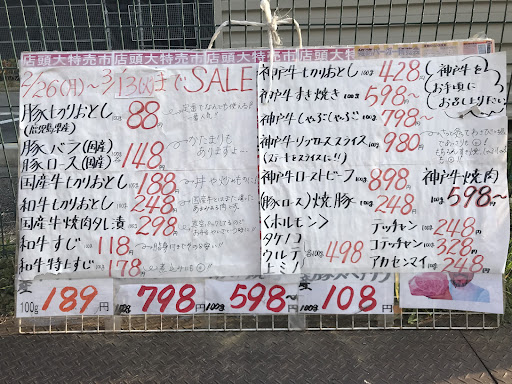 店頭大特売市 店頭大特売市 店頭大特売市 店頭大特売市
2/26(月)～3/13(火)までSALE
豚切りおとし 100g 88円
(鹿児島県産)
豚バラ(国産)
豚ロース(国産) 148円
かたまりもありますよー
国産牛切りおとし 188円
和牛切りおとし 100g 248円
国産牛焼肉タレ漬 298円
和牛すじ 100g 118円
和牛特上すじ 100g 178円
神戸牛切りおとし 100g 428円
神戸牛すき焼き 100g 598円～
神戸牛しゃぶしゃぶ 100g 798円～
神戸牛リブローススライス 100g 980円
(ステーキとスライスに!!)
神戸牛ローストビーフ 100g 898円
(豚ロース)焼豚 100g 248円
<ホルモン>
タケノコ
ウルテ
上ミノ
各100g 498円
(神戸牛をお手頃にお召し上り下さい～)
神戸牛焼肉
100g 598円～
テッチャン 100g 248円
コテッチャン 100g 328円
アカセンマイ 100g 248円
100g 189円
100g 798円
100g 598円～
100g 108円